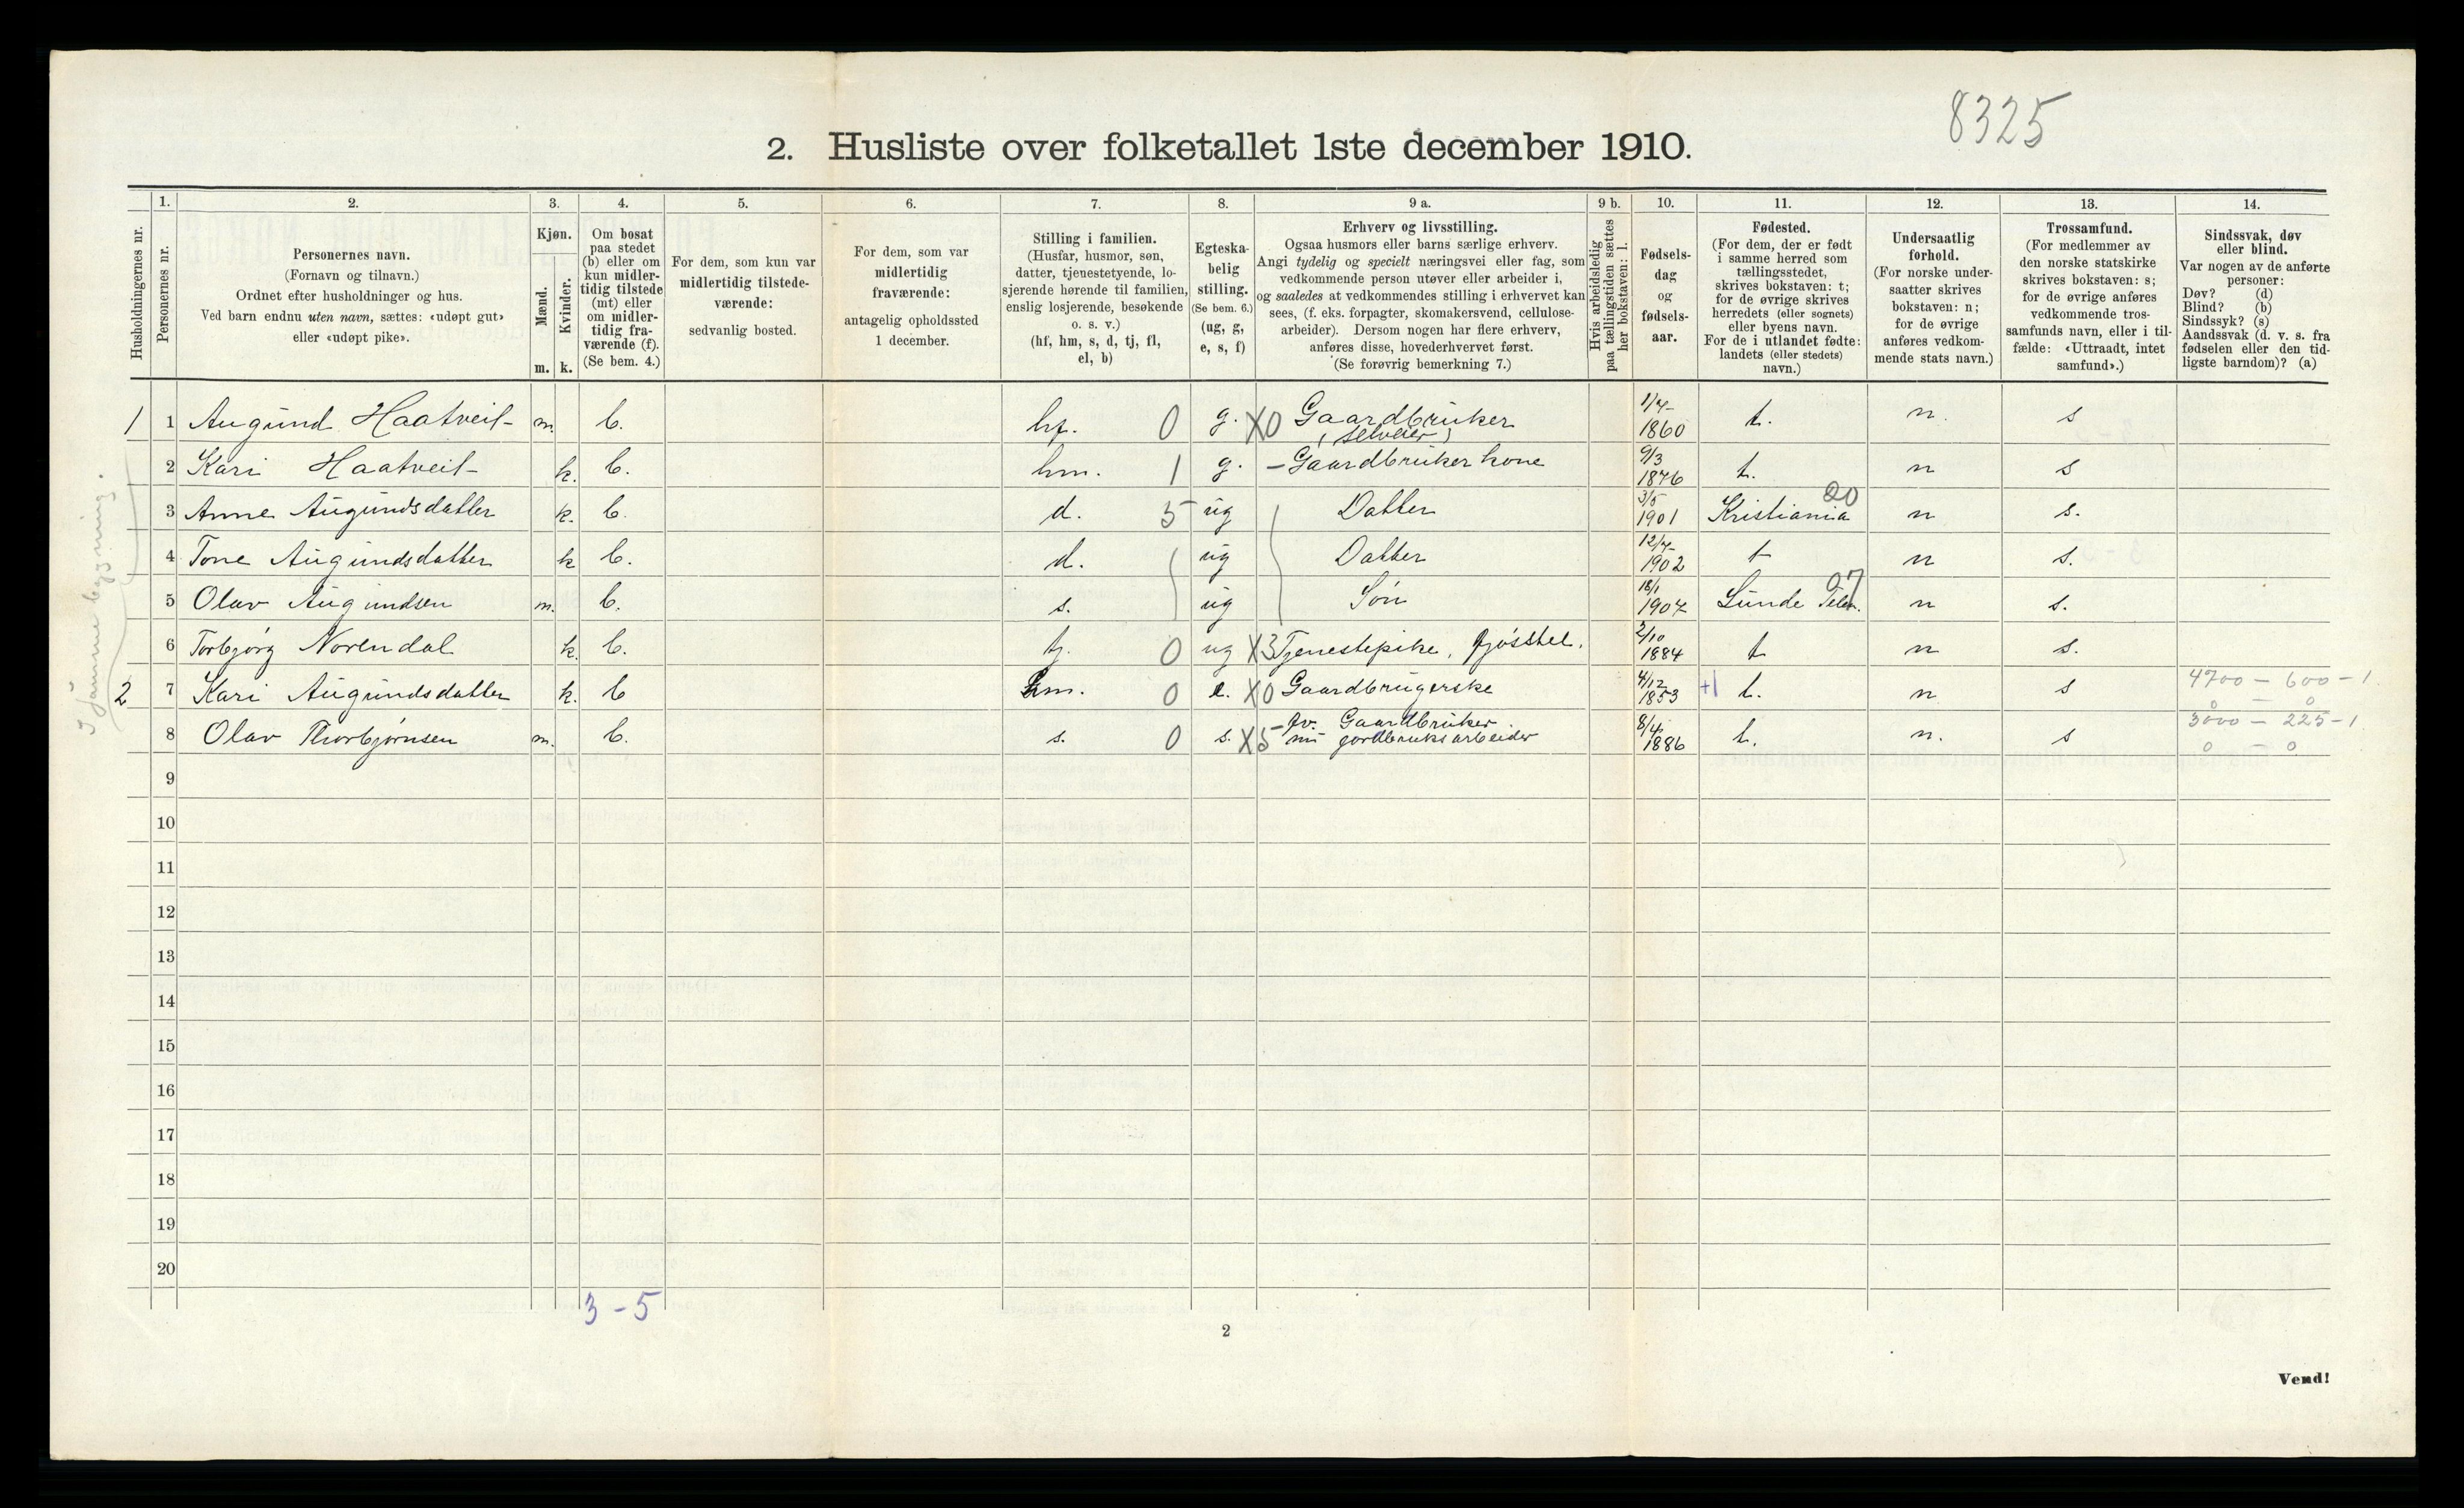 8325
2. Husliste over folketallet 1ste december 1910.
Husholdningernes nr.
1.
Personernes nr.
2.
Personernes navn.
(Fornavn og tilnavn.)
Ordnet efter husholdninger og hus.
Ved barn endnu uten navn, sættes: «udøpt gut»
eller «udøpt pike».
3.
Kjøn.
Mænd.
Kvinder.
m. k.
4.
Om bosat
paa stedet
(b) eller om
kun midler-
tidig tilstede
(mt) eller
om midler-
tidig fra-
værende (f).
(Se bem. 4.)
5.
For dem, som kun var
midlertidig tilstede-
værende:
sedvanlig bosted.
6.
For dem, som var
midlertidig
fraværende:
antagelig opholdssted
1 december.
7.
Stilling i familien.
(Husfar, husmor, søn,
datter, tjenestetyende, lo-
sjerende hørende til familien,
enslig losjerende, besøkende
o. s. v.)
(hf, hm, s, d, tj, fl,
el, b)
8.
Egteska-
belig
stilling.
(Se bem. 6.)
(ug, g,
e, s, f)
9 a.
Erhverv og livsstilling.
Ogsaa husmors eller barns særlige erhverv.
Angi tydelig og specielt næringsvei eller fag, som
vedkommende person utøver eller arbeider i,
og saaledes at vedkommendes stilling i erhvervet kan
sees, (f. eks. forpagter, skomakersvend, cellulose-
arbeider). Dersom nogen har flere erhverv,
anføres disse, hovederhvervet først.
(Se forøvrig bemerkning 7.)
9 b.
Hvis arbeidsledig
paa tællingstiden sættes
her bokstaven: l.
10.
Fødsels-
dag
og
fødsels-
aar.
11.
Fødested.
(For dem, der er født
i samme herred som
tællingsstedet,
skrives bokstaven: t;
for de øvrige skrives
herredets (eller sognets)
eller byens navn.
For de i utlandet fødte:
landets (eller stedets)
navn.)
12.
Undersaatlig
forhold.
(For norske under-
saatter skrives
bokstaven: n;
for de øvrige
anføres vedkom-
mende stats navn.)
13.
Trossamfund.
(For medlemmer av
den norske statskirke
skrives bokstaven: s;
for de øvrige anføres
vedkommende tros-
samfunds navn, eller i til-
fælde: «Uttraadt, intet
samfund».)
14.
Sindssvak, døv
eller blind.
Var nogen av de anførte
personer:
Døv? (d)
Blind? (b)
Sindssyk? (s)
Aandssvak (d. v. s. fra
fødselen eller den tid-
ligste barndom)? (a)
1 1 Augund Haatveit m. b. hf. 0 g. X0 Gaardbruker (selveier) 1/7 1860 t. n. s
2 Kari Haatveit k. b. hm. 1 g. - Gaardbruker kone 9/3 1876 t. n s
3 Anne Augundsdatter k. b. d. 5 ug Datter 3/5 1901 Kristiania 20 n s.
4 Tone Augundsdatter k b. d. ug Datter 12/7 1902 t n s.
5 Olav Augundsen m. b. s. ug Søn 18/1 1907 Lunde Telem. 07 n s.
6 Torbjørg Norendal k. b. tj. 0 ug X3 Tjenestepike, fjøsstel. 2/10 1884 t n s.
2 7 Kari Augundsdatter k. b hm. 0 e. X0 Gaardbrugerske 4/12 1853 +1 t. n s 4700 - 600 - 1
0 - 0
8 Olav Thorbjørnsen m. b. s. 0 s. X5 fv. Gaardbruker nu jordbruksarbeider 8/4 1886 t. n. s 3000 - 225 - 1
0 - 0
I samme bygning.
9
10
11
12
13
14
15
16
17
18
19
20
3 - 5
2
Vend!